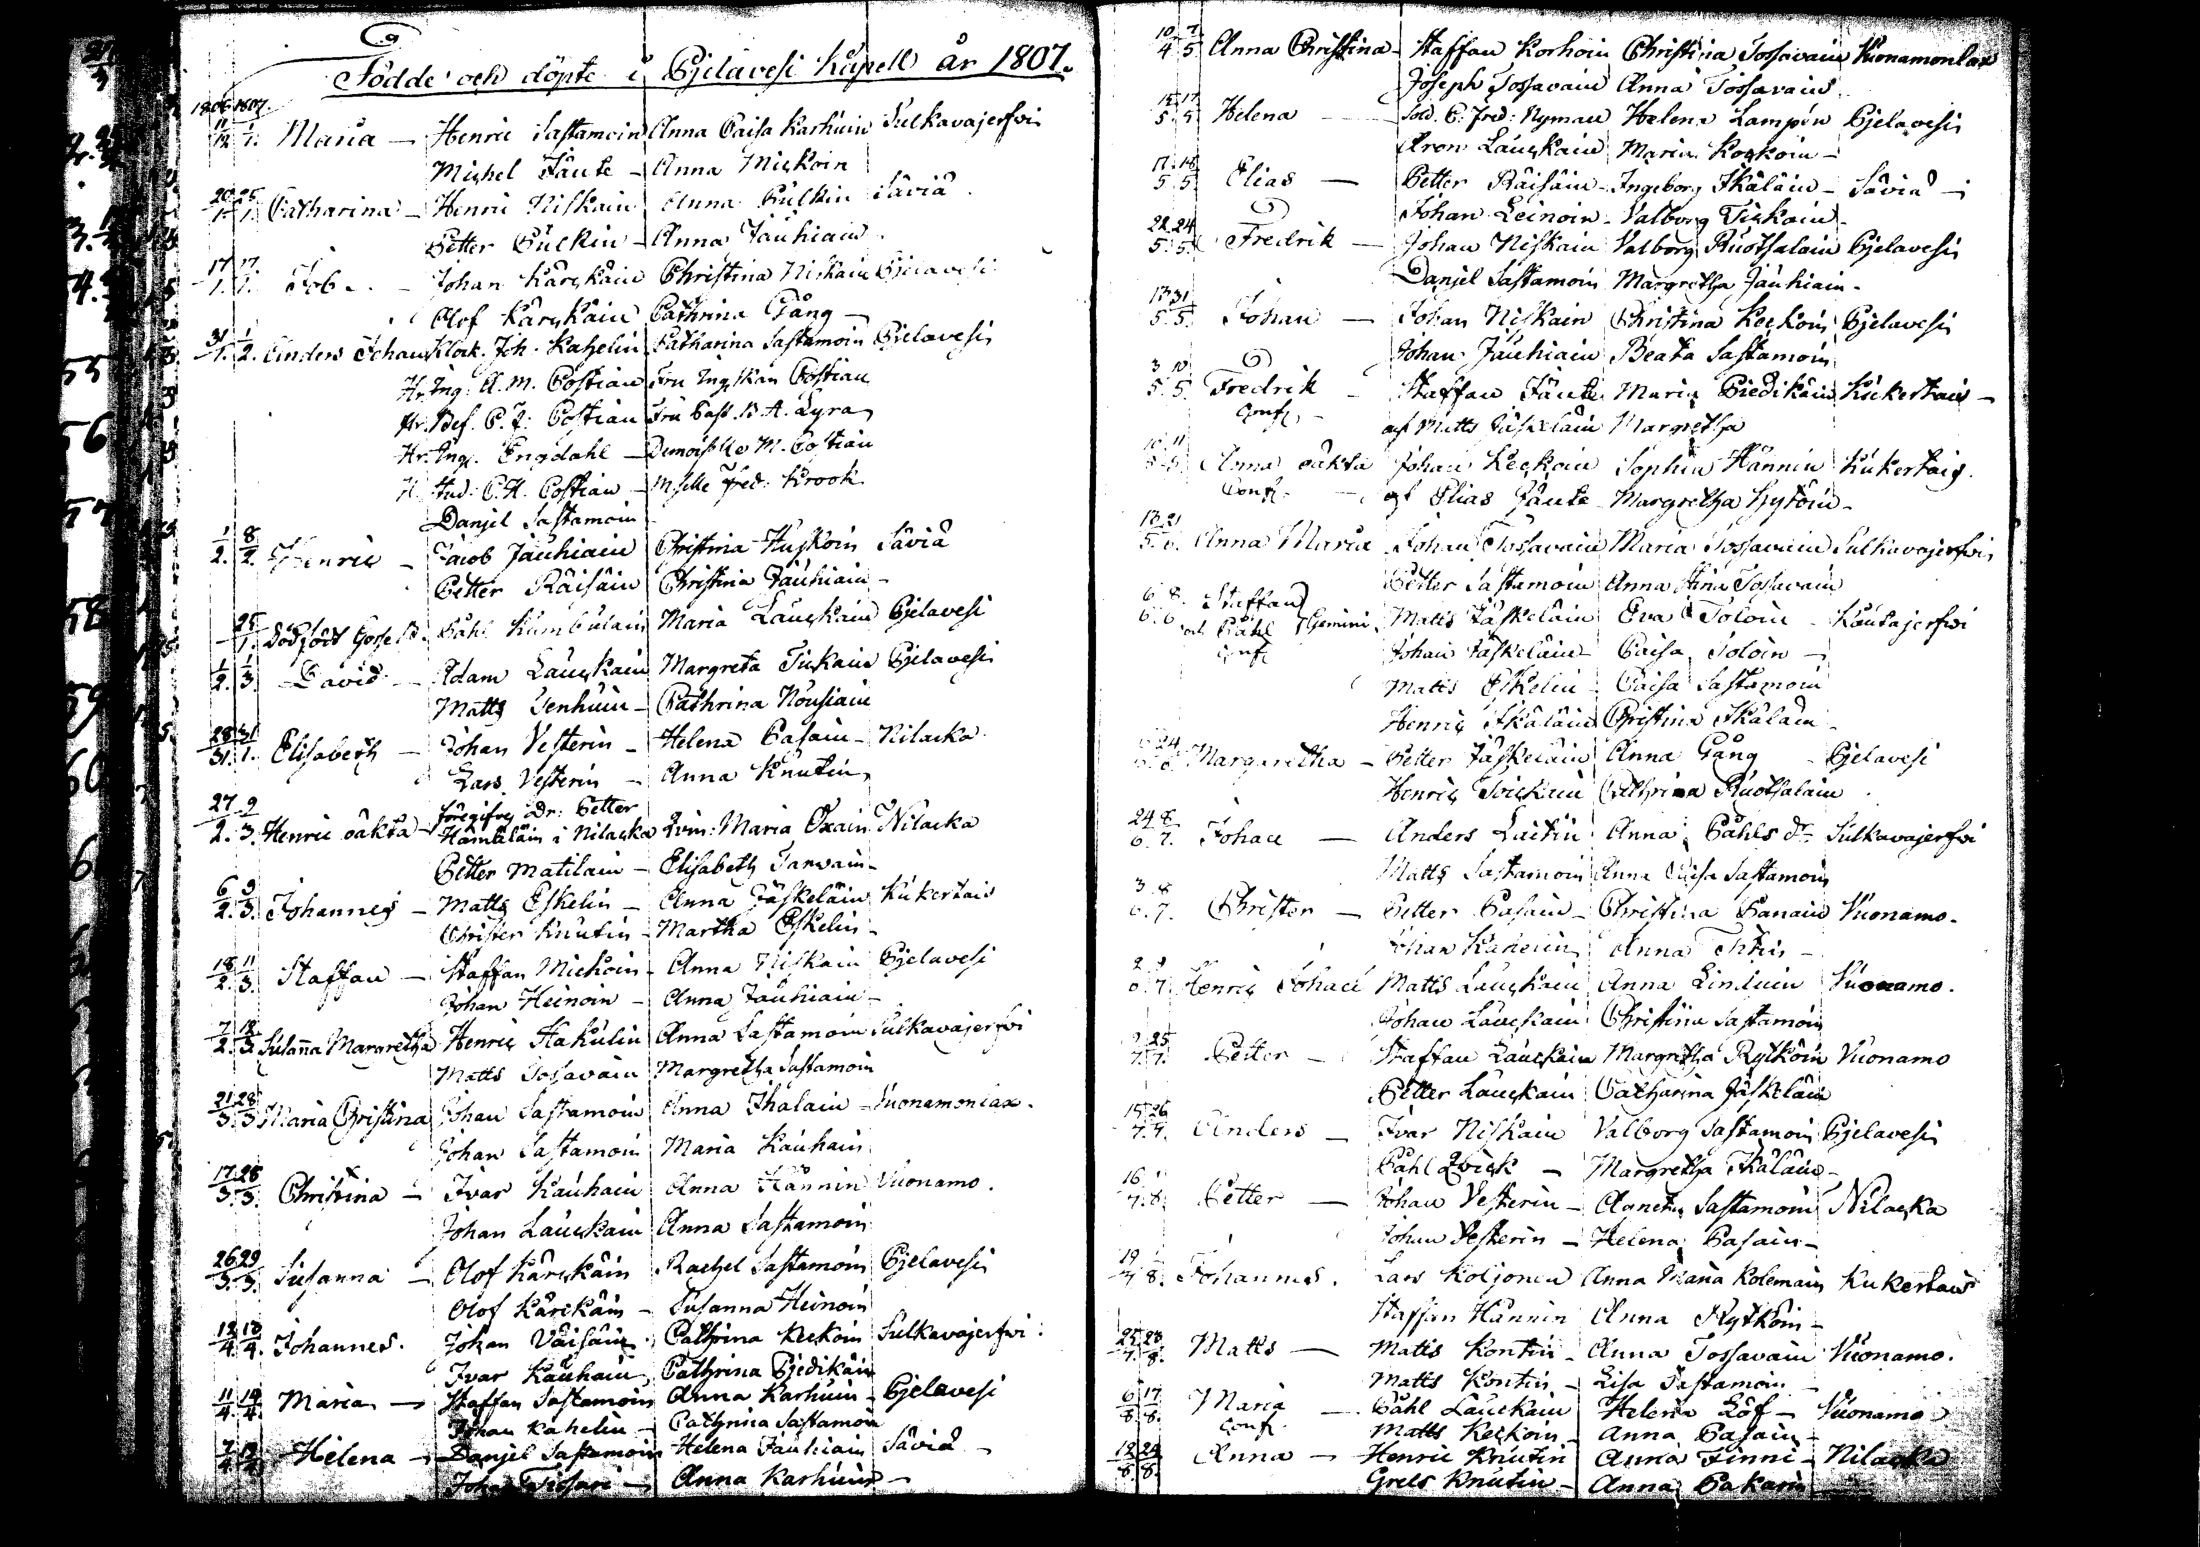 Födde och döpte i Pjelavesi Kapell år 1807.
1806 1807.
11/12 1/1. Maria — Henric Sastamoin Anna Caisa Karhuin Sulkavajerfvi
Michel Jäute — Anna Mickoin
20/1. 25/1. Catharina — Henric Niskain Anna Pulkin Säviä
Petter Pulkin — Anna Jauhiain
17/1. 17/1. Job — Johan Kärckäin Christina Niskain Pjelavesi
Olof Kärckäin Cathrina Gång —
31/1. 1/2. Anders Johan Klock. Joh. Kahelin Catharina Sastamoin Pjelavesi
Hr. Ing. A. M. Costian Fru Ingskan Costian
Hr. Bef. C. J. Costian Fru Past. B. A. Lyra
Hr. Ing. Engdahl — Demoiselle M. Costian
H. Stud. C. H. Costian — Mselle Fred. Krook
Danjel Sastamoin
1/2. 8/2. Henric — Jacob Jauhiain Christina Huskoin Säviä
Petter Räisäin Christina Jauhiain —
25/1. Dödfödt Gosse B. Påhl Kumbulain Maria Lauckain Pjelavesi
1/2. 1/3. David — Adam Lauckain Margreta Tiickain Pjelavesi
Matts Venhuin — Cathrina Nousiain
28/31. 31/1. Elisabeth — Johan Vesterin — Helena Pasain — Nilacka
Lars Vesterin — Anna Knutin
27/2. 9/3. Henric oäkta — föregifves Dr. Petter
Hämäläin i Nilacka Qvin: Maria Oxain Nilacka
Petter Matilain — Elisabeth Tarvain —
6/2. 9/3. Johannes — Matts Eskelin — Anna Jäskeläin Kukertais
Christer Knutin — Martha Eskelin —
18/2. 11/3. Staffan — Staffan Mickoin — Anna Niskain Pjelavesi
Johan Heinoin — Anna Jauhiain —
7/2. 18/3. Susanna Margretha Henric Hakulin Anna Sastamoin Sulkavajerfvi
Matts Tossavain Margretha Sastamoin
21/3. 28/3. Maria Christina Johan Sastamoin Anna Ihalain — Vuonamonlax.
Johan Sastamoin Maria Kauhain
17/3. 28/3. Christina — Ivar Kauhain Anna Hännin Vuonamo.
Johan Lauckain Anna Sastamoin
26/3. 29/3. Susanna — Olof Kärckäin Rachel Sastamoin Pjelavesi
Olof Kärckäin — Susanna Heinoin
12/4. 13/4. Johannes. Johan Väisäin Cathrina Keckoin Sulkavajerfvi.
Ivar Kauhain Cathrina Pjedikäin
11/4. 19/4. Maria — Staffan Sastamoin Anna Karhuin — Pjelavesi
Johan Kahelin — Cathrina Sastamoin
7/4. 19/4. Helena — Danjel Sastamoin Helena Jauhiain Säviä —
Anna Karhuin —
10/4 7/5 Anna Christina — Staffan Korhoin Christina Tossavain Vuonamonlax
Joseph Tossavain Anna Tossavain
15/5. 17/5 Helena — Sold. C. Fred: Nyman Helena Lampén Pjelavesi
Aron Lauckain Maria Koskoin —
17/5 18/5. Elias — Petter Räisäin — Ingeborg Ikäläin — Säviä —
Johan Leinoin — Valborg Tickain —
22/5. 24/5. Fredrik — Johan Niskain Valborg Ruotsalain Pjelavesi
Danjel Sastamoin Margretha Jauhiain —
13/5. 31/5. Johan — Johan Niskain Christina Keckoin Pjelavesi
Johan Jauhiain Beata Sastamoin
3/5. 10/5. Fredrik — Staffan Jäute Maria Pjedikäin Kukertais —
Conf. — af Matts Jäskeläin Margretha
10/5. 11/5. Anna oäkta Johan Keckoin Sophia Hännin Kukertais.
Conf. — af Elias Jäute Margretha Hytöin —
13/5. 21/6. Anna Maria Johan Tossavain Maria Tossavain Sulkavajerfvi
Petter Sastamoin Anna Stina Tossavain
6/6. 8/6. Staffan
och Påhl Gemini Matts Jäskeläin Eva Toloin — Koutajerfvi
Conf. Johan Jäskeläin — Caisa Toloin —
Matts Eskelin — Caisa Sastamoin
Henric Ikäläin Christina Ikäläin —
24 Margaretha — Petter Jäskeläin Anna Gång — Pjelavesi
Henric Cathrina Ruotsalain
24/6. 8/7. Johan — Anders Laitin Anna Påhls dr. Sulkavajerfvi
Matts Sastamoin Anna Caisa Sastamoin
3/6. 8/7. Christer — Petter Pasain — Christina Vuonamo.
Johan Kahelin Anna
Henric Johan Matts Lauckain Anna Vuonamo.
Johan Lauckain Christina Sastamoin
9/7. 25/7. Petter — Staffan Lauckain Margretha Rytköin Vuonamo
Petter Lauckain Catharina Jäskeläin
15/7. 26/7. Anders — Ivar Niskain Valborg Sastamoin Pjelavesi
Påhl Qvick — Margretha Ikäläin —
16/7. 1/8. Petter — Johan Vesterin — Agneta Sastamoin Nilacka
Johan Vesterin — Helena Pasain —
19/7 1/8. Johannes. Lars Koljonen Anna Maria Kolemain Kukertais
Staffan Hännin Anna Rytköin —
25/7. 23/8. Matts — Matts Kontin — Anna Tossavain Vuonamo.
Matts Kontin — Lisa Sastamoin —
6/8. 17/8. Maria — Påhl Lauckain Helena Löf — Vuonamo
Conf. Matts Keckoin — Anna Pasain —
12/8 24/8. Anna — Henric Knutin Anna Finni — Nilacka
Grels Knutin — Anna Pakarin